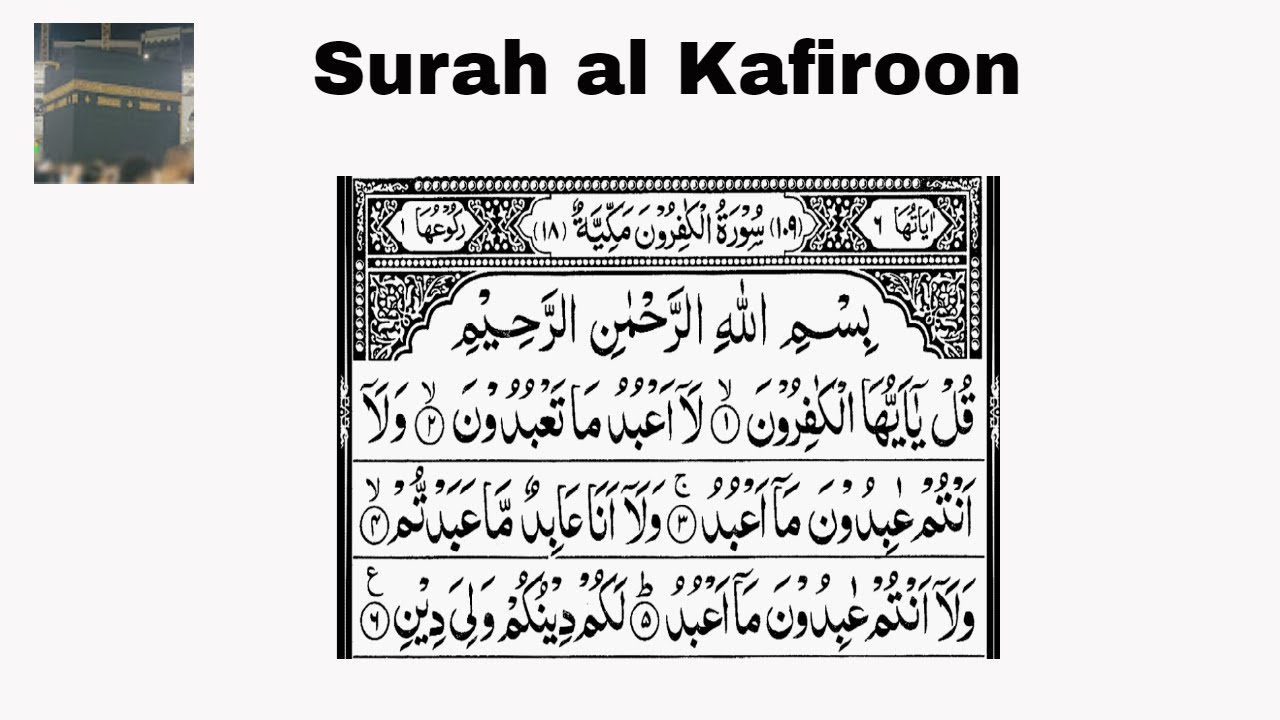 Surah al Kafiroon
اٰيَاتُهَا ٦ (١٠٩) سُوْرَةُ الْكٰفِرُوْنَ مَكِّيَّةٌ (١٨) رُكُوْعُهَا ١
بِسْمِ اللّٰهِ الرَّحْمٰنِ الرَّحِيْمِ
قُلْ يٰۤاَيُّهَا الْكٰفِرُوْنَ ۙ﴿١﴾ لَاۤ اَعْبُدُ مَا تَعْبُدُوْنَ ۙ﴿٢﴾ وَلَاۤ
اَنْتُمْ عٰبِدُوْنَ مَاۤ اَعْبُدُ ۚ﴿٣﴾ وَلَاۤ اَنَا عَابِدٌ مَّا عَبَدْتُّمْ ۙ﴿٤﴾
وَلَاۤ اَنْتُمْ عٰبِدُوْنَ مَاۤ اَعْبُدُ ؕ﴿٥﴾ لَكُمْ دِيْنُكُمْ وَلِيَ دِيْنِ ﴿٦﴾ ع